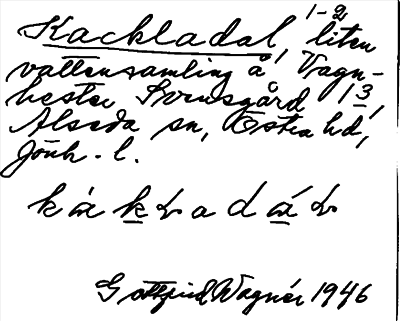 Kackladal, 1-2 liten
vattensamling å Vagn-
hester Svensgård 1 3,
Alseda sn, Östra hd,
Jönk. l.
Gottfrid Wagnér 1946